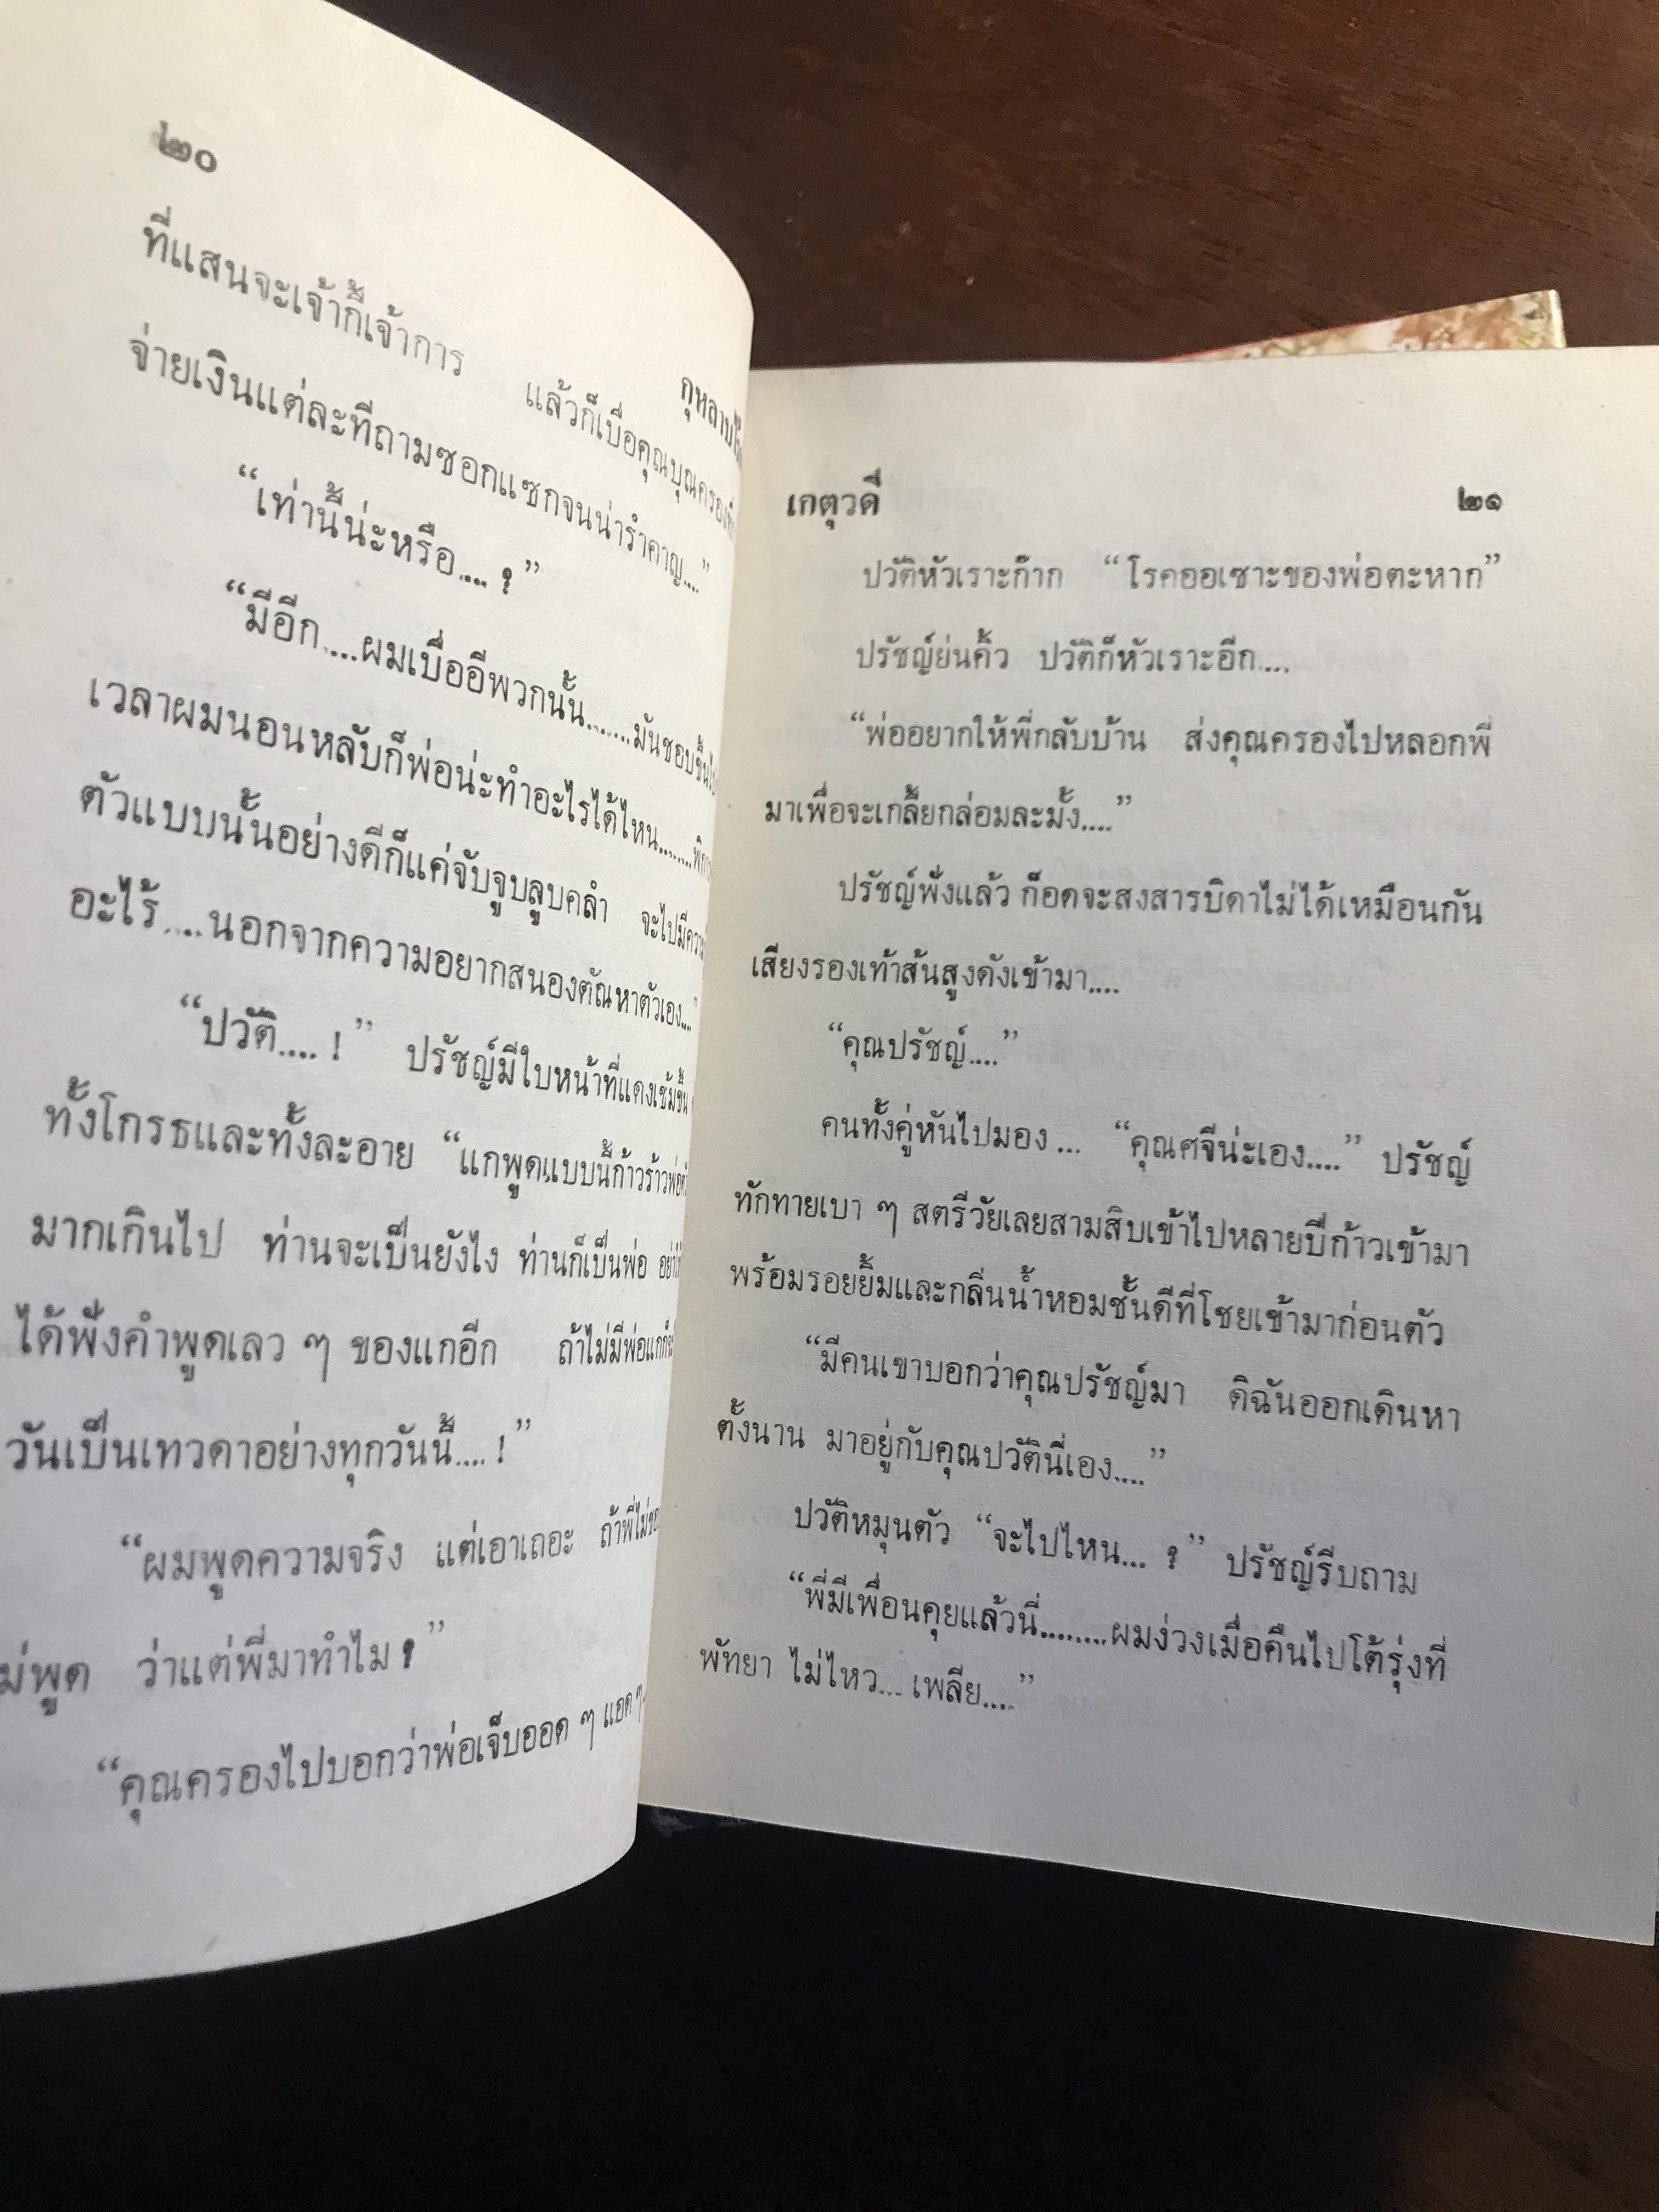 ๒๐
ที่แสนจะเจ้ากี้เจ้าการ แล้วก็เบื่อคุณบุณครอง
จ่ายเงินแต่ละทีถามซอกแซกจนน่ารำคาญ....”
“เท่านี้น่ะหรือ.... ?”
“มีอีก....ผมเบื่ออีพวกนั้น.......มันชอบขึ้น
เวลาผมนอนหลับก็พ่อน่ะทำอะไรได้ไหน........
ตัวแบบนั้นอย่างดีก็แค่จับจูบลูบคลำ จะไปมี
อะไร้....นอกจากความอยากสนองตัณหาตัวเอง....”
“ปวัติ.... !” ปรัชญ์มีใบหน้าที่แดงเข้มขึ้น
ทั้งโกรธและทั้งละอาย “แกพูดแบบนี้ก้าวร้าวพ่อ
มากเกินไป ท่านจะเป็นยังไง ท่านก็เป็นพ่อ
ได้ฟังคำพูดเลว ๆ ของแกอีก ถ้าไม่มีพ่อแก
วันเป็นเทวดาอย่างทุกวันนี้.... !”
“ผมพูดความจริง แต่เอาเถอะ ถ้าพี่ไม่
พูด ว่าแต่พี่มาทำไม ?”
“คุณครองไปบอกว่าพ่อเจ็บออด ๆ แอด ๆ
เกตุวดี ๒๑
ปวัติหัวเราะก๊าก “โรคออเซาะของพ่อตะหาก”
ปรัชญ์ย่นคิ้ว ปวัติก็หัวเราะอีก....
“พ่ออยากให้พี่กลับบ้าน ส่งคุณครองไปหลอกพี่
มาเพื่อจะเกลี้ยกล่อมละมั้ง....”
ปรัชญ์ฟังแล้ว ก็อดจะสงสารบิดาไม่ได้เหมือนกัน
เสียงรองเท้าส้นสูงดังเข้ามา....
“คุณปรัชญ์....”
คนทั้งคู่หันไปมอง... “คุณศจีน่ะเอง....” ปรัชญ์
ทักทายเบา ๆ สตรีวัยเลยสามสิบเข้าไปหลายปีก้าวเข้ามา
พร้อมรอยยิ้มและกลิ่นน้ำหอมชั้นดีที่โชยเข้ามาก่อนตัว
“มีคนเขาบอกว่าคุณปรัชญ์มา ดิฉันออกเดินหา
ตั้งนาน มาอยู่กับคุณปวัตินี่เอง....”
ปวัติหมุนตัว “จะไปไหน... ?” ปรัชญ์รีบถาม
“พี่มีเพื่อนคุยแล้วนี่........ผมง่วงเมื่อคืนไปโต้รุ่งที่
พัทยา ไม่ไหว... เพลีย....”